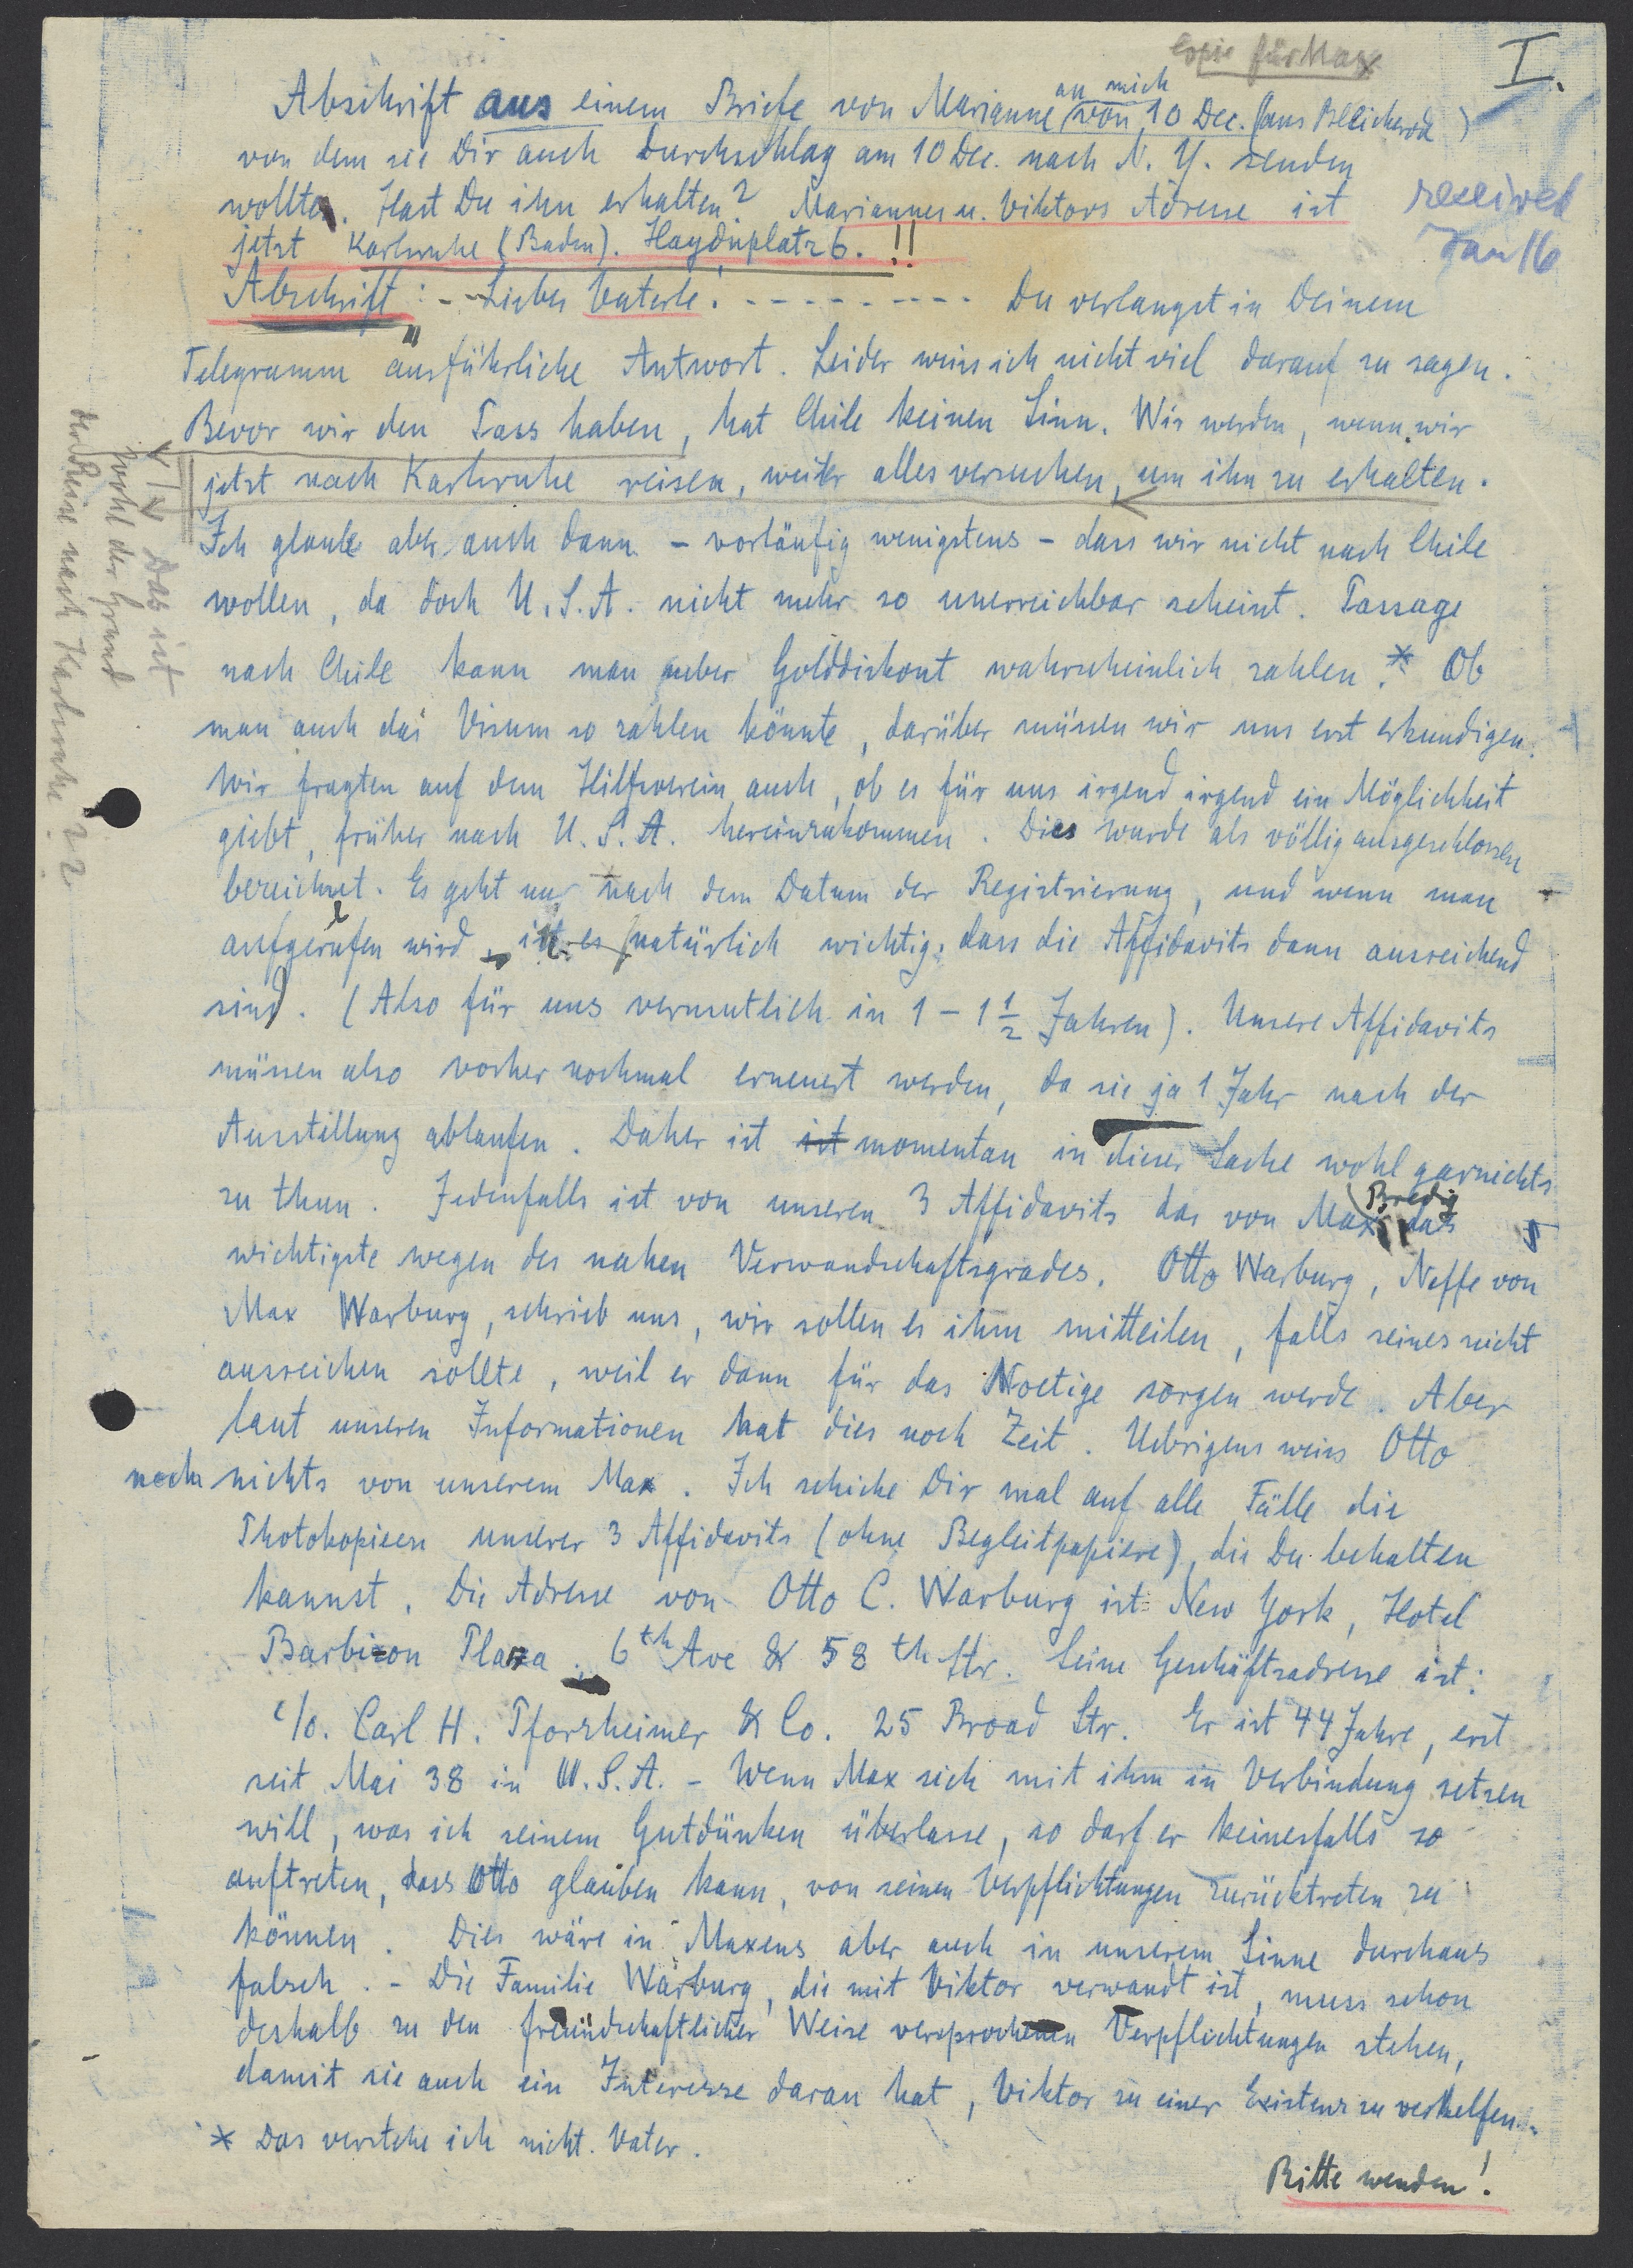 Copie für Max
I.
Abschrift aus einem Briefe von Marianne an mich von 10 Dec. (aus Bleicherode)
von dem sie Dir auch Durchschlag am 10 Dec. nach N. Y. senden
wollte. Hast Du ihn erhalten? Mariannes u. Viktors Adresse ist
jetzt Karlsruhe (Baden). Haydnplatz 6. !!
received
Jan 16
Abschrift: - - Lieber Vaterle! - - - - - - - - - Du verlangst in Deinem
Telegramm ausführliche Antwort. Leider weiss ich nicht viel darauf zu sagen.
Bevor wir den Pass haben, hat Chile keinen Sinn. Wir werden, wenn wir
jetzt nach Karlsruhe reisen, weiter alles versuchen, um ihn zu erhalten.
Das ist
wohl der Grund
der Reise nach Karlsruhe ??
Ich glaube aber auch dann - vorläufig wenigstens - dass wir nicht nach Chile
wollen, da doch U.S.A. nicht mehr so unerreichbar scheint. Passage
nach Chile kann man ueber Golddiskont wahrscheinlich zahlen.* Ob
man auch das Visum so zahlen könnte, darüber müssen wir uns erst erkundigen.
Wir fragten auf dem Hilfsverein auch, ob es für uns irgend irgend ein Möglichkeit
giebt, früher nach U.S.A. hereinzukommen. Dies wurde als völlig ausgeschlossen
bezeichnet. Es geht nur nach dem Datum der Registrierung, und wenn man
aufgerufen wird, ist es natürlich wichtig, dass die Affidavits dann ausreichend
sind. (Also für uns vermutlich in 1 - 1 1/2 Jahren). Unsere Affidavits
müssen also vorher nochmal erneuert werden, da sie ja 1 Jahr nach der
Ausstellung ablaufen. Daher ist ist momentan in dieser Sache wohl garnichts
zu thun. Jedenfalls ist von unseren 3 Affidavits das von Max Bredig das
wichtigste wegen des nahen Verwandschaftsgrades. Otto Warburg, Neffe von
Max Warburg, schrieb uns, wir sollen es ihm mitteilen, falls seines nicht
ausreichen sollte, weil er dann für das Noetige sorgen werde. Aber
laut unseren Informationen hat dies noch Zeit. Uebrigens weiss Otto
noch nichts von unserem Max. Ich schicke Dir mal auf alle Fälle die
Photokopieen unserer 3 Affidavits (ohne Begleitpapiere), die Du behalten
kannst. Die Adresse von Otto C. Warburg ist: New York, Hotel
Barbizon Plaza, 6th Ave & 58th Str. Seine Geschäftsadresse ist:
c/o. Carl H. Pforzheimer & Co. 25 Broad Str. Er ist 44 Jahre, erst
seit Mai 38 in U.S.A. - Wenn Max sich mit ihm in Verbindung setzen
will, was ich seinem Gutdünken überlasse, so darf er keinesfalls so
auftreten, dass Otto glauben kann, von seinen Verpflichtungen zurücktreten zu
können. Dies wäre in Maxens aber auch in unserem Sinne durchaus
falsch. - Die Familie Warburg, die mit Viktor verwandt ist, muss schon
deshalb zu den freundschaftlicher Weise versprochenen Verpflichtungen stehen,
damit sie auch ein Interesse daran hat, Viktor zu einer Existenz zu verhelfen.
* Das verstehe ich nicht. Vater.
Bitte wenden!